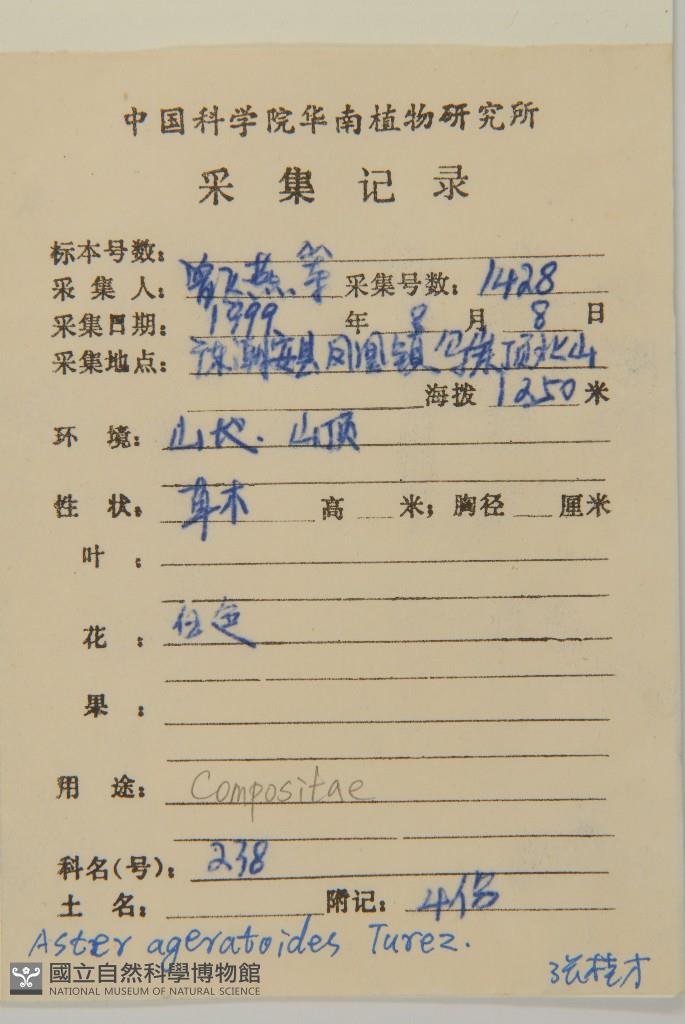 中国科学院华南植物研究所
采集记录
标本号数:
采集人: 曾飞燕、等 采集号数: 1428
采集日期: 1999 年 8 月 8 日
采集地点: 潮安县凤凰镇 顶北山
海拨 1250 米
环境: 山地. 山顶
性状: 草本 高 米; 胸径 厘米
叶:
花: 色
果:
用途: Compositae
科名(号): 238
土名: 附记: 4份
Aster ageratoides Turez.
張桂才
國立自然科學博物館
NATIONAL MUSEUM OF NATURAL SCIENCE